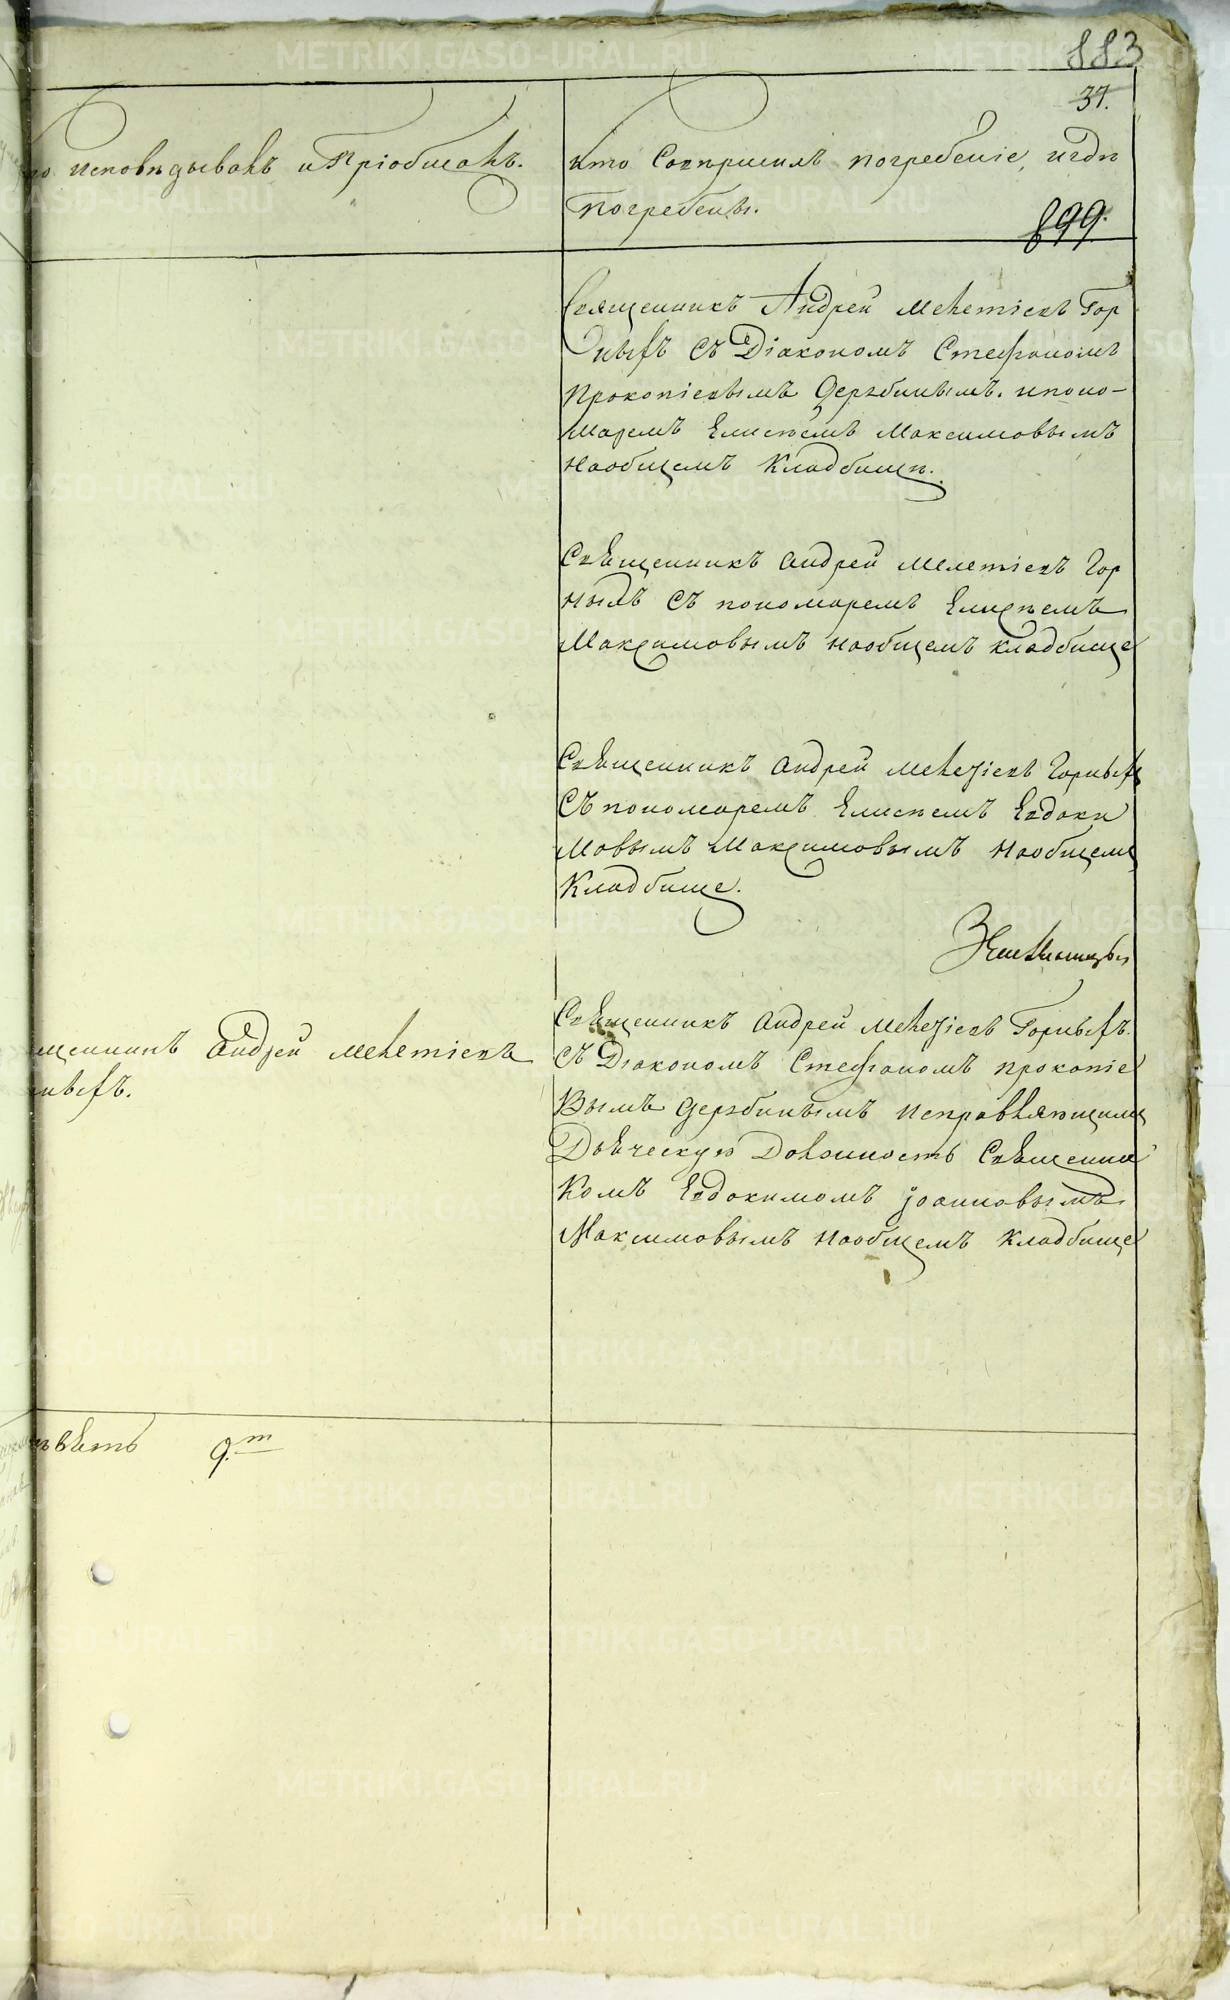 883
37.
исповѣдывалъ и Пріобщалъ.
кто Совершилъ погребеніе, и гдѣ
Погребены.
899.
Священникъ Андрей Мелетіевъ Гор
ныхъ съ Діакономъ Стефаномъ
Прокопіевымъ Дерябинымъ. и поно-
маремъ Елисѣемъ Максимовымъ
на общемъ Кладбищѣ.
Священникъ Андрей Мелетіевъ Гор
ныхъ съ пономаремъ Елисѣемъ
Максимовымъ на общемъ кладбище
Священникъ Андрей Мелетіевъ Горныхъ
съ пономаремъ Елисѣемъ Евдоки
мовымъ Максимовымъ на общемъ
Кладбище.
щенникъ Андрей Мелетіевъ
ныхъ.
Священникъ Андрей Мелетіевъ Горныхъ.
съ Діакономъ Стефаномъ Прокопіе
вымъ Дерябинымъ исправляющимъ
Дьяческую Должность Священни
комъ Евдокимомъ Іоанновымъ
Максимовымъ на общемъ Кладбище
9.т
METRIKI.GASO-URAL.RU